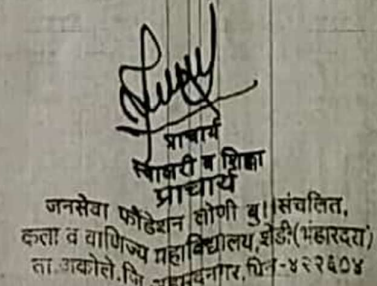 प्राचार्य
स्वाक्षरी व शिक्का
प्राचार्य
जनसेवा फौंडेशन लोणी बु।।संचलित,
कला व वाणिज्य महाविद्यालय,शेंडी(भंडारदरा)
ता.अकोले,जि.अहमदनगर,पिन-४२२६०४